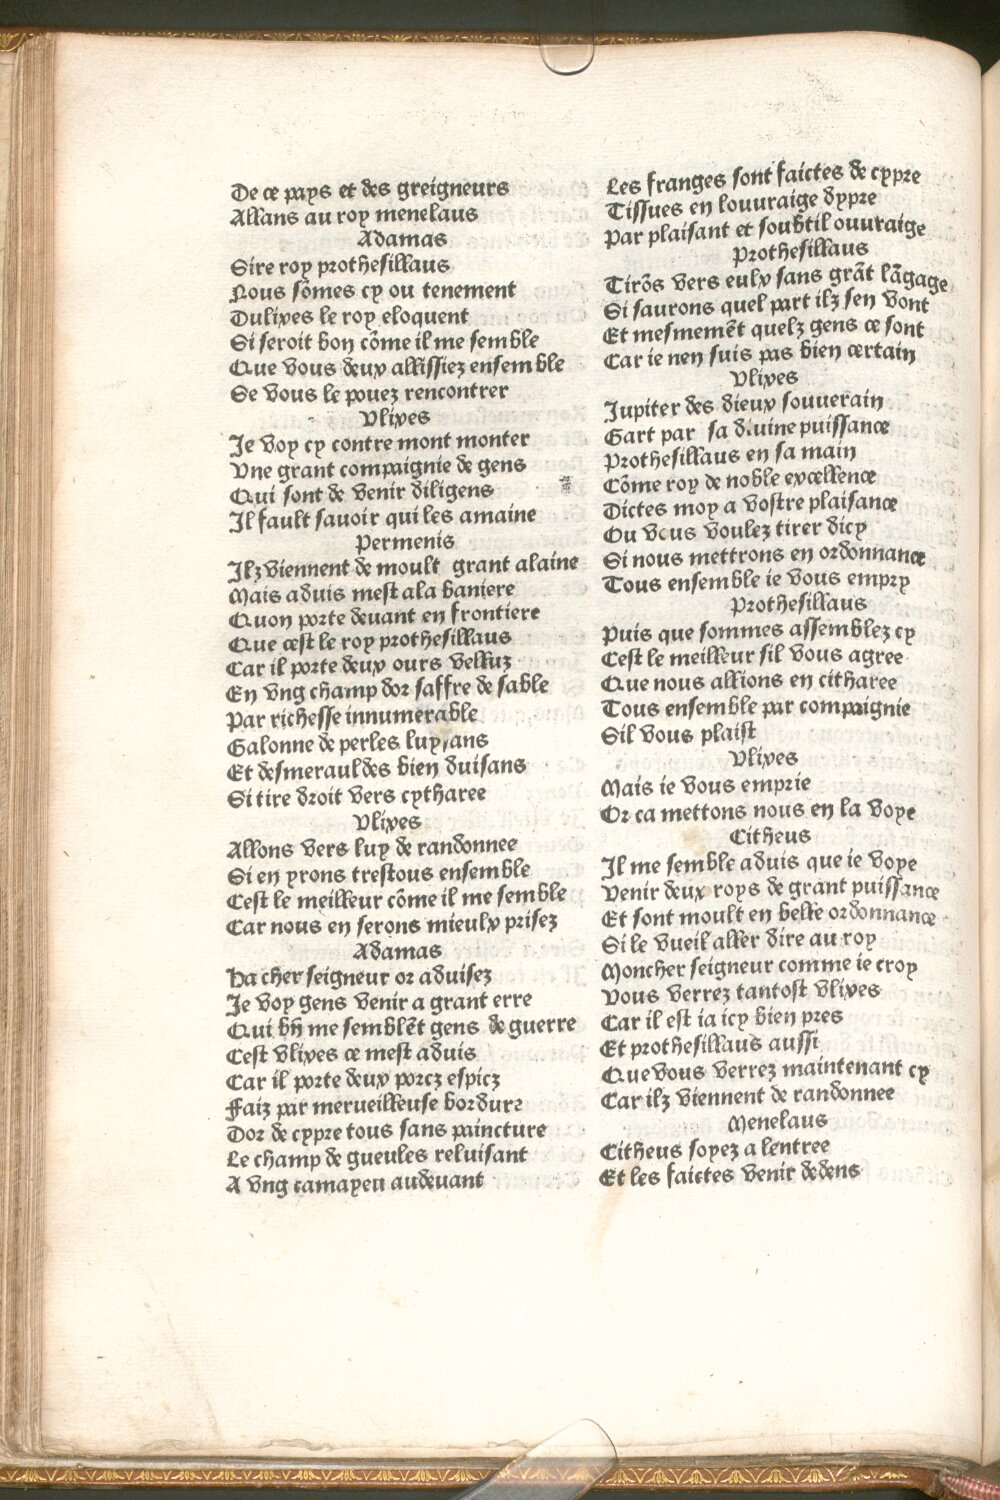 De ce pays et des greigneurs
Allans au roy menelaus
Adamas
Sire roy prothesillaus
Nous sõmes cy ou tenement
Dulixes le roy eloquent
Si seroit bon cõme il me semble
Que vous deux allissiez ensemble
Se vous le pouez rencontrer
Vlixes
Je voy cy contre mont monter
Vne grant compaignie de gens
Qui sont de venir diligens
Il fault savoir qui les amaine
Permenis
Ilz viennent de moult grant alaine
Mais aduis mest ala baniere
Quon porte devant en frontiere
Que cest le roy prothesillaus
Car il porte deux ours velluz
En vng champ dor saffre de sable
Par richesse innumerable
Galonne de perles luysans
Et desmerauldes bien duisans
Si tire droit vers cytharee
Vlixes
Allons vers luy de randonnee
Si en yrons trestous ensemble
Cest le meilleur cõme il me semble
Car nous en serons mieulx prisez
Adamas
Ha cher seigneur or aduisez
Je voy gens venir a grant erre
Qui bñ me semblẽt gens de guerre
Cest vlixes ce mest aduis
Car il porte deux porcz espicz
Faiz par merueilleuse bordure
Dor de cypre tous sans paincture
Le champ de gueules reluisant
A vng camayeu audeuant
Les franges sont faictes de cypre
Tissues en louuraige dypre
Par plaisant et soubtil ouuraige
Prothesillaus
Tirõs vers eulx sans grãt lãgage
Si saurons quel part ilz sen vont
Et mesmemẽt quelz gens ce sont
Car ie nen suis pas bien certain
Vlixes
Jupiter des dieux souuerain
Gart par sa diuine puissance
Prothesillaus en sa main
Cõme roy de noble excellence
Dictes moy a vostre plaisance
Ou vous voulez tirer dicy
Si nous mettrons en ordonnance
Tous ensemble ie vous empry
Prothesillaus
Puis que sommes assemblez cy
Cest le meilleur sil vous agree
Que nous allions en citharee
Tous ensemble par compaignie
Sil vous plaist
Vlixes
Mais ie vous emprie
Or ca mettons nous en la voye
Citheus
Il me semble aduis que ie voye
Venir deux roys de grant puissance
Et sont moult en belle ordonnance
Si le vueil aller dire au roy
Moncher seigneur comme ie croy
Vous verrez tantost vlixes
Car il est ia icy bien pres
Et prothesillaus aussi
Que vous verrez maintenant cy
Car ilz viennent de randonnee
Menelaus
Citheus soyez a lentree
Et les faictes venir dedens